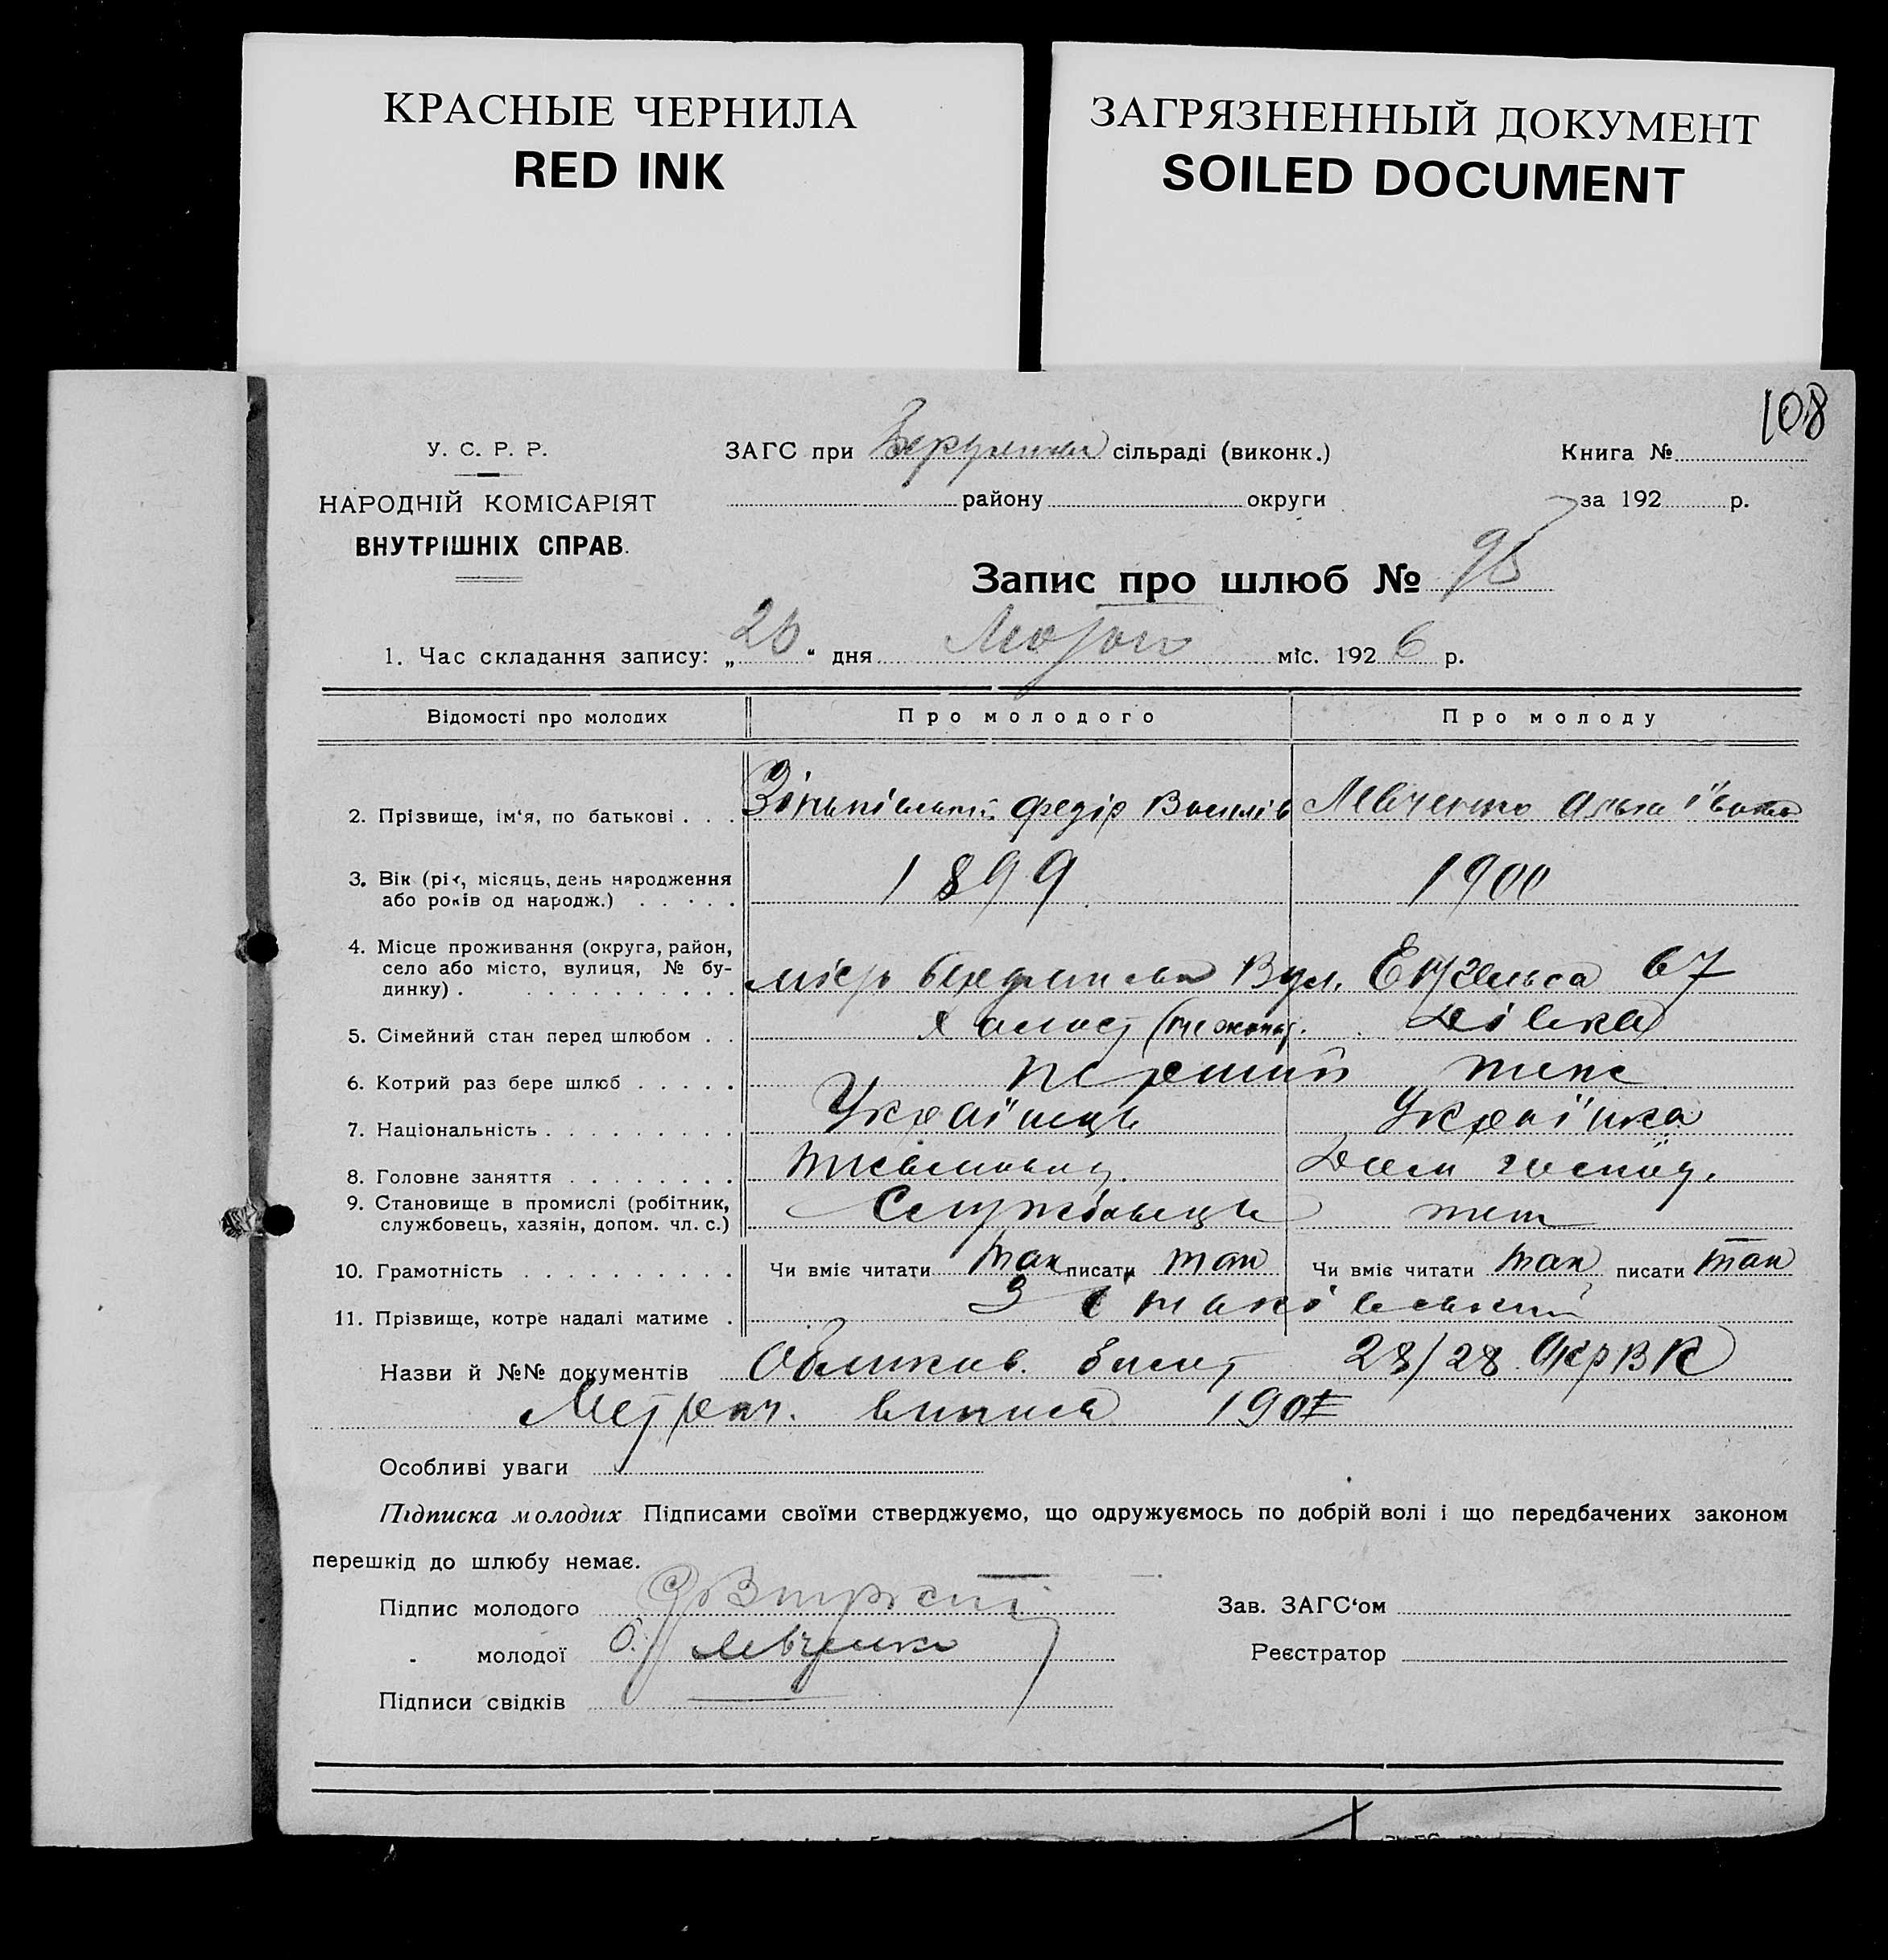 КРАСНЫЕ ЧЕРНИЛА
RED INK
ЗАГРЯЗНЕННЫЙ ДОКУМЕНТ
SOILED DOCUMENT
108
У. С. Р. Р.
НАРОДНІЙ КОМІСАРІЯТ
ВНУТРІШНІХ СПРАВ.
ЗАГС при сільраді (виконк.)
району округи
Книга №
за 192 р.
Запис про шлюб №
1. Час складання запису: „ “ дня Лютого міс. 1926 р.
Відомості про молодих Про молодого Про молоду
2. Прізвище, ім‘я, по батькові . . . Федір Василів Левченко
3. Вік (рік, місяць, день народження
або років од народж.) . . . . . 1899 1900
4. Місце проживання (округа, район,
село або місто, вулиця, № бу-
динку) . . . . . . . . . . . місто Вул. Енгельса 67
5. Сімейний стан перед шлюбом . . Холост дівка
6. Котрий раз бере шлюб . . . . . перший теж
7. Національність . . . . . . . . . Українець Українка
8. Головне заняття . . . . . . . . Дом. господ.
9. Становище в промислі (робітник,
службовець, хазяін, допом. чл. с.) Службовець
10. Грамотність . . . . . . . . . . Чи вміє читати так писати так Чи вміє читати так писати так
11. Прізвище, котре надалі матиме .
Назви й №№ документів Обліков. билет 28/28 ОкрВК
Метрич. випись
Особливі уваги
Підписка молодих Підписами своїми стверджуємо, що одружуємось по добрій волі і що передбачених законом
перешкід до шлюбу немає.
Підпис молодого
„ молодої О. Левченко
Підписи свідків
Зав. ЗАГС‘ом
Реєстратор